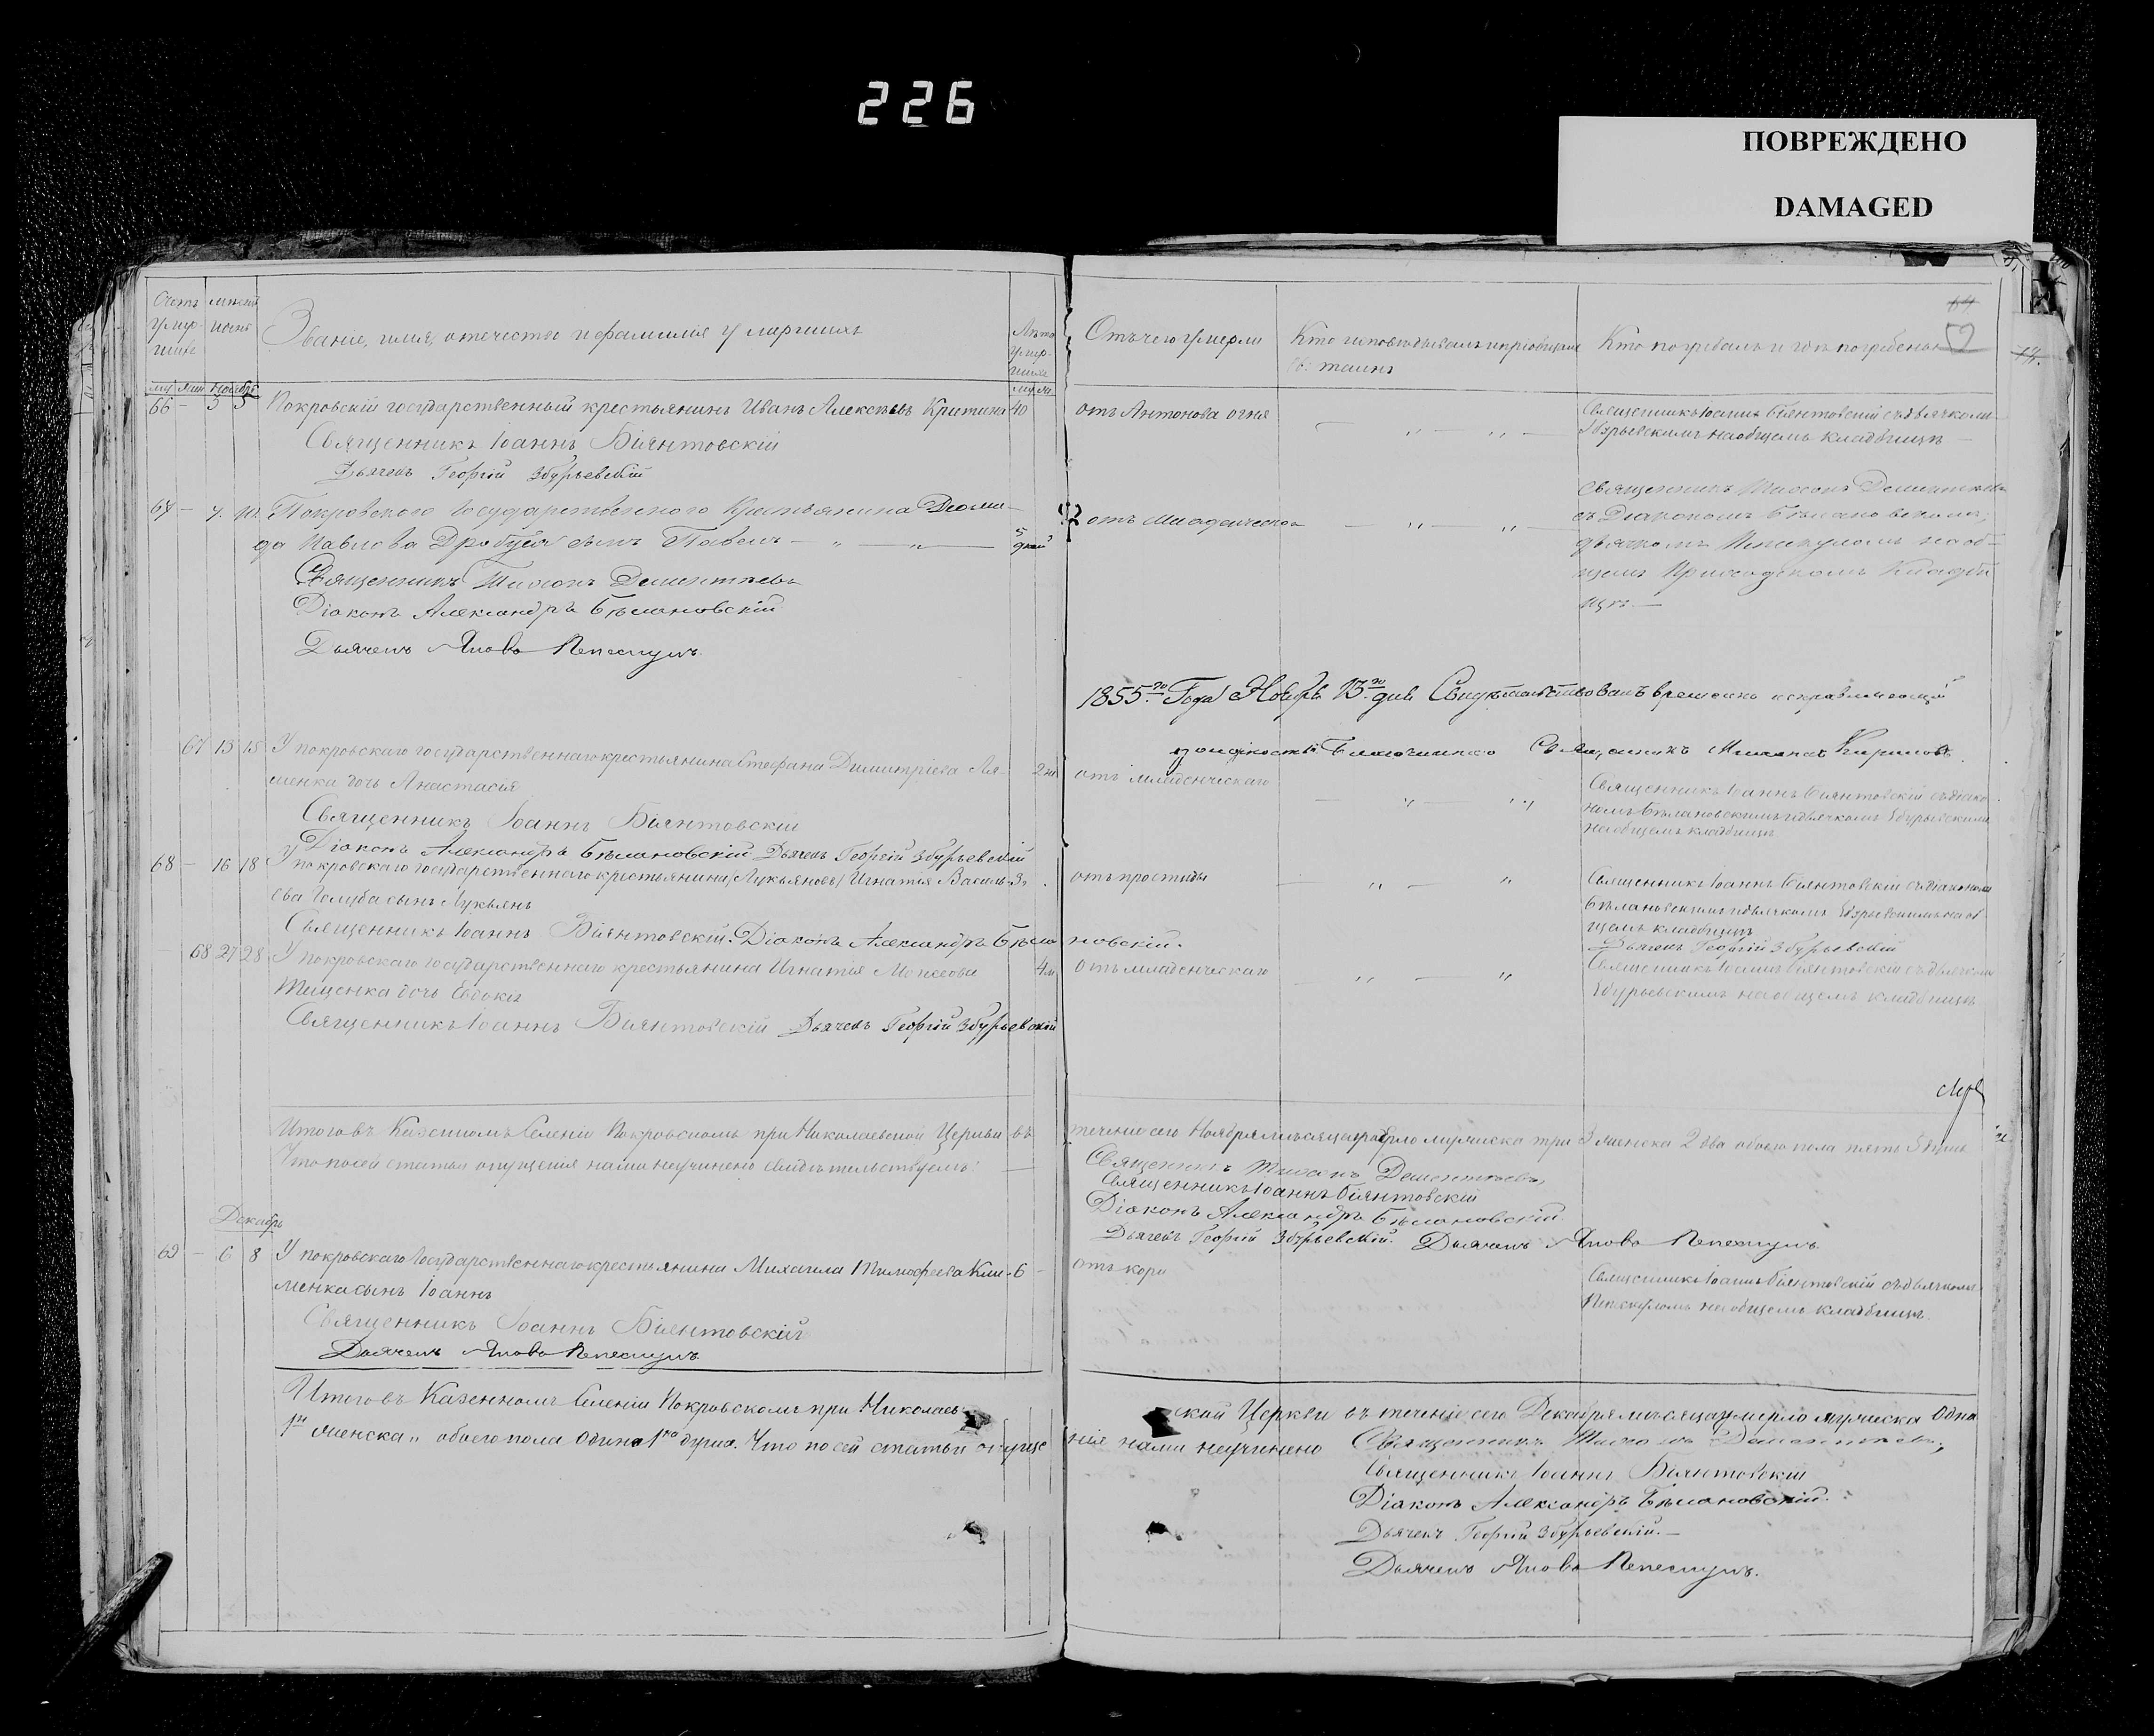 226
ПОВРЕЖДЕНО
DAMAGED
Счетъ умер-шихъ
Званіе, имя, отечество и фамилія умершихъ
Лѣта умер-шихъ
Отъ чего умерли
Кто исповѣдывалъ и пріобщалъ св: таинъ
Кто погребалъ и гдѣ погребены
64
74.
Ноябрь
66 - 3 5 Покровскій государственный крестьянинъ Иванъ Алексѣевъ 40
отъ Антонова огня
Священникъ Іоаннъ Біянтовскій съ дьячкомъ
Збурьевскимъ на общемъ кладбищѣ
Священникъ Іоаннъ Біянтовскій
Дьячекъ Георгій Збурьевскій
67 - 9. 10. Покровскаго Государственного Крестьянина Діоми-
да Павлова сынъ Павелъ 5 дней
отъ младенческой
Священникъ Тихонъ Дементьевъ
съ Діакономъ Бѣлановскимъ,
дьячкомъ на об-
щемъ Приходскомъ Кладби
щѣ.
Священникъ Тихонъ Дементьевъ
Діаконъ Александръ Бѣлановскій
Дьячекъ Яковъ
1855го Года Ноября 13го дня Свидѣтельствовалъ временно исправляющій
должность Благочиннаго Священникъ Кириловъ.
67 13 15 У покровскаго государственнаго крестьянина Стефана Димитріева Ля-
шенка дочь Анастасія
отъ младенческаго
Священникъ Іоаннъ Біянтовскій съ діако
номъ Бѣлановскимъ и дьячкомъ Збурьевскимъ
на общемъ кладбищѣ
Священникъ Іоаннъ Біянтовскій
Діаконъ Александръ Бѣлановскій Дьячекъ Георгій Збурьевскій
68 - 16 18 У покровскаго государственнаго крестьянина (Лукьяновъ) Игнатія Василь-
ева Голуба сынъ Лукьянъ
отъ простуды
Священникъ Іоаннъ Біянтовскій съ діакономъ
Бѣлановскимъ и дьячкомъ Збурьевскимъ на об
щемъ кладбищѣ
Священникъ Іоаннъ Біянтовскій. Діаконъ Александръ Бѣлановскій.
Дьячекъ Георгій Збурьевскій
68 27 28 У покровскаго государственнаго крестьянина Игнатія Моисеева
Тищенка дочь Евдокія
отъ младенческаго
Священникъ Іоаннъ Біянтовскій съ дьячкомъ
Збурьевскимъ на общемъ кладбищѣ
Священникъ Іоаннъ Біянтовскій Дьячекъ Георгій Збурьевскій
Итого въ Казенномъ Селеніи Покровскомъ при Николаевской Церкви въ теченіе сего Ноября мѣсяца умерло мужеска три 3 женска 2 два обоего пола пять 5 душъ
Что по сей статьи опущенія нами неучинено свидѣтельствуемъ:
Священникъ Тихонъ Дементьевъ,
Священникъ Іоаннъ Біянтовскій
Діаконъ Александръ Бѣлановскій.
Дьячекъ Георгій Збурьевскій. Дьячекъ Яковъ
Декабрь
69 - 6 8 У покровскаго государственнаго крестьянина Михаила Тимофеева Кли- 6
менка сынъ Іоаннъ
отъ кори
Священникъ Іоаннъ Біянтовскій съ дьячкомъ
на общемъ кладбищѣ.
Священникъ Іоаннъ Біянтовскій
Дьячекъ Яковъ
Итого въ Казенномъ Селеніи Покровскомъ при Николаевской Церкви въ теченіе сего Декабря мѣсяца умерло мужеска одна
1на женска „ обоего пола одина 1на душа. Что по сей статьи опущенія нами неучинено
Священникъ Тихонъ Дементьевъ,
Священникъ Іоаннъ Біянтовскій
Діаконъ Александръ Бѣлановскій.
Дьячекъ Георгій Збурьевскій.
Дьячекъ Яковъ